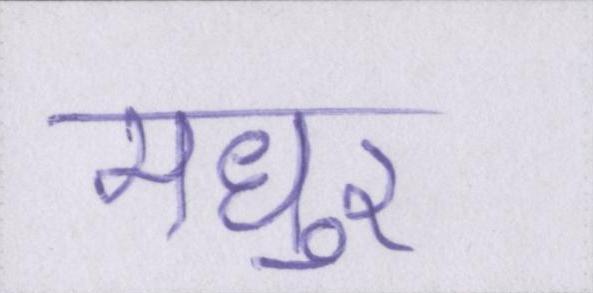 मधुर